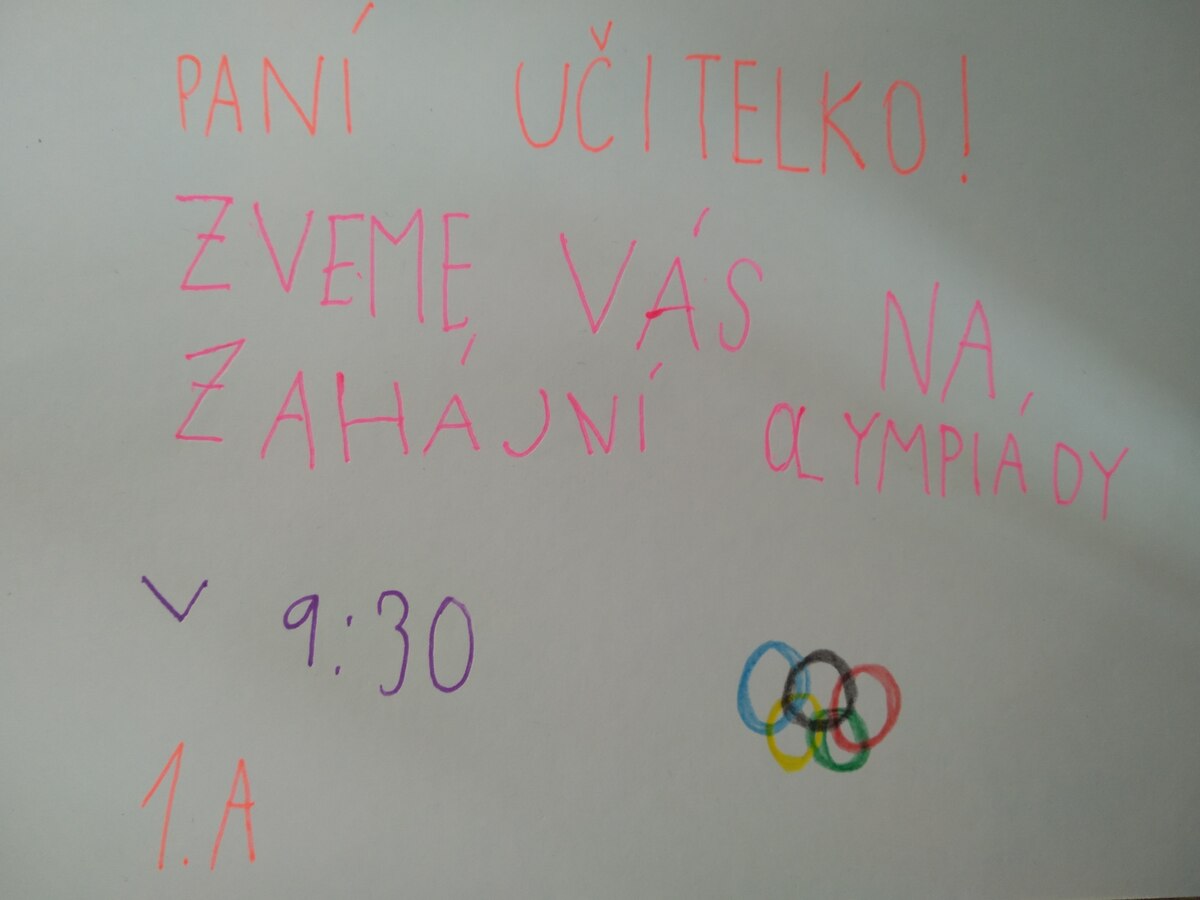 PANÍ UČITELKO!
ZVEME VÁS NA
ZAHÁJNÍ OLYMPIÁDY
V 9:30
1.A